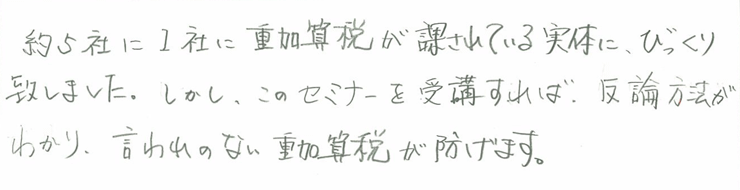 約5社に1社に重加算税が課されている実体に、びっくり
致しました。しかし、このセミナーを受講すれば、反論方法が
わかり、言われのない重加算税が防げます。